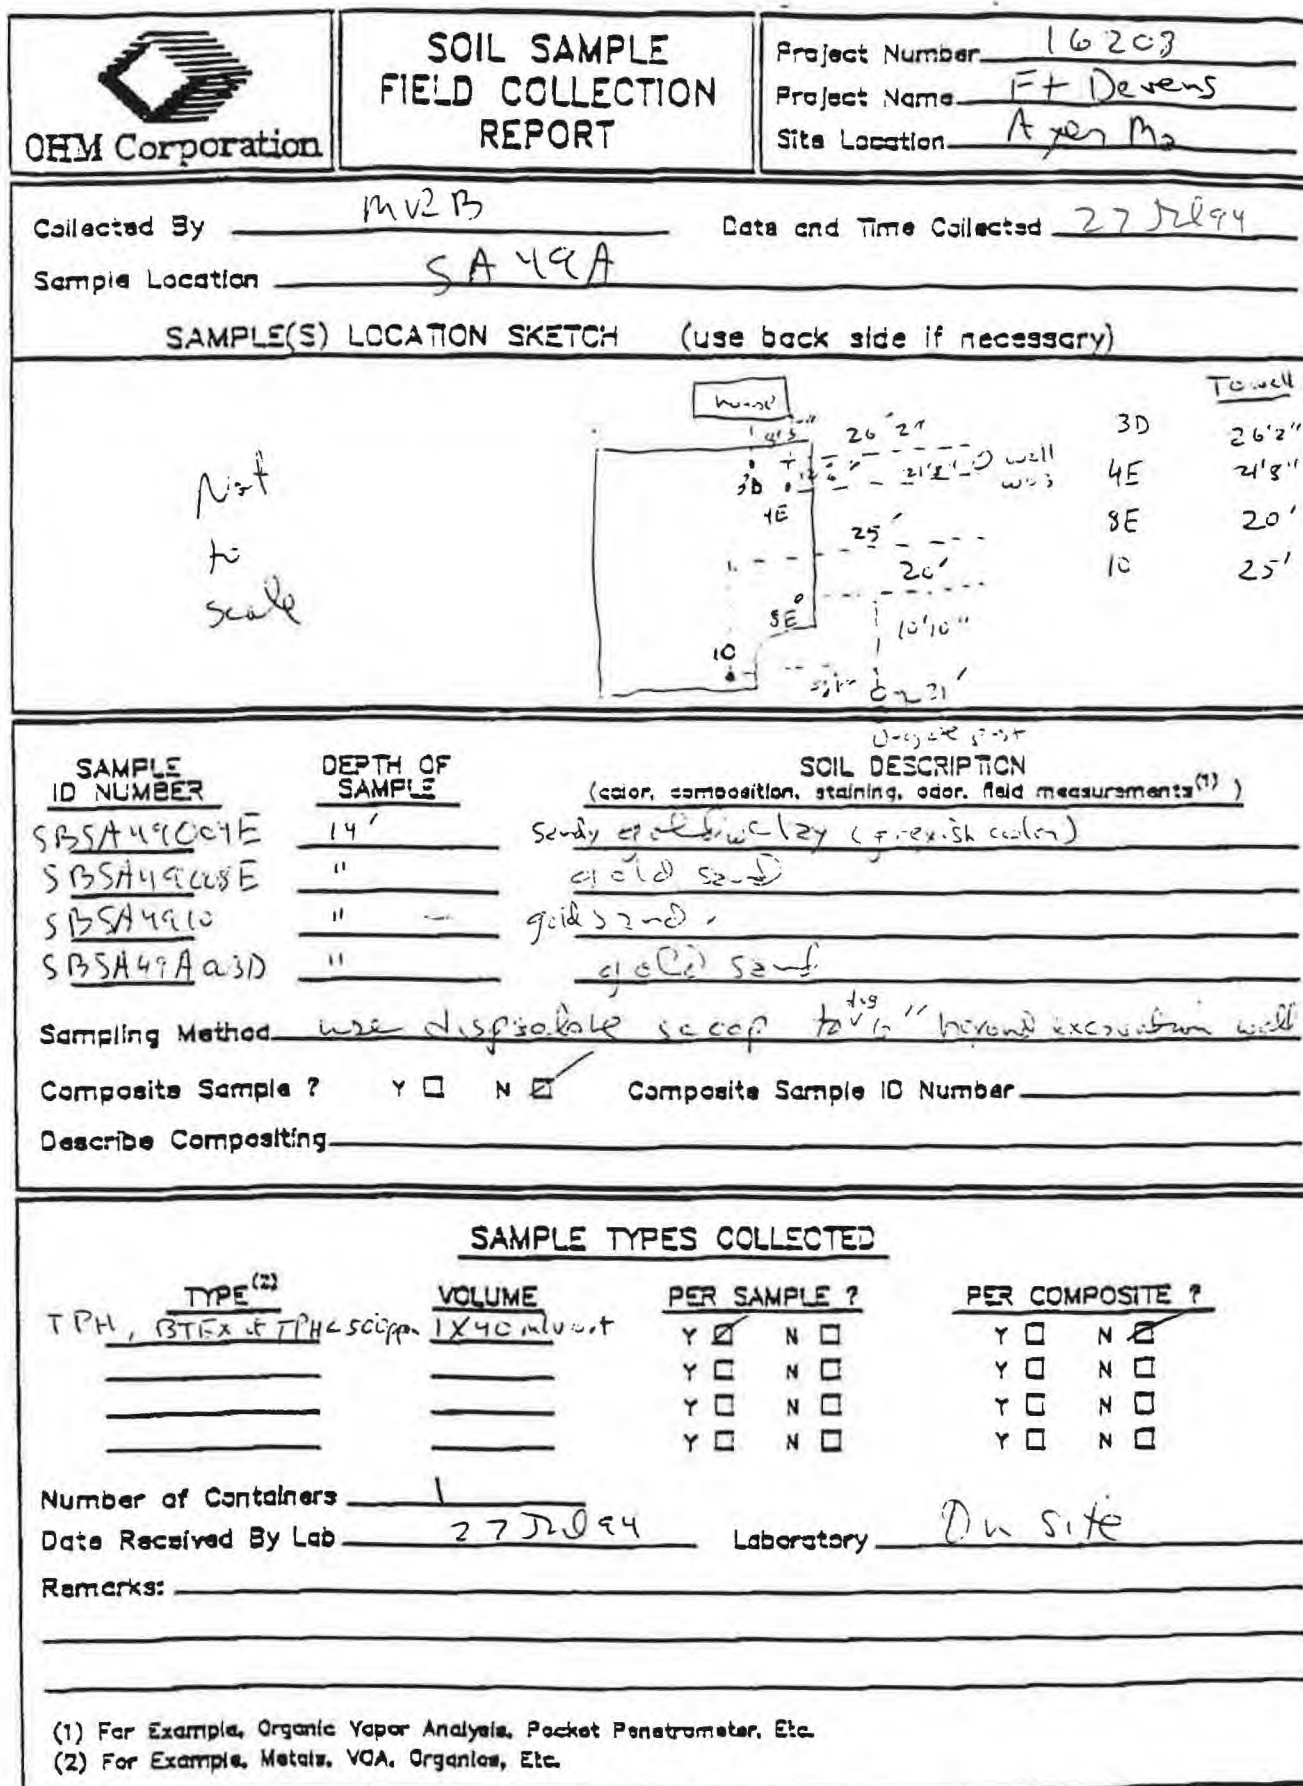 OHM Corporation
SOIL SAMPLE
FIELD COLLECTION
REPORT
Project Number 16203
Project Name Ft Devens
Site Location Ayer Ma
Collected By
Date and Time Collected 27 Jul 94
Sample Location SA 49A
SAMPLE(S) LOCATION SKETCH (use back side if necessary)
Not
to
scale
house
26'2"
3D
4E
21'8"
well
25'
20'
8E
10'10"
10
21'
To well
3D 26'2"
4E 21'8"
8E 20'
10 25'
SAMPLE ID NUMBER
DEPTH OF SAMPLE
SOIL DESCRIPTION
(color, composition, staining, odor, field measurements(1) )
SBSA49004E 14' Sandy clay (greyish color)
SBSA49008E " gold sand
SBSA4910 " gold sand
SBSA49A03D " gold sand
Sampling Method use disposable scoop to dig 6" beyond excavation wall
Composite Sample ? Y N Composite Sample ID Number
Describe Compositing
SAMPLE TYPES COLLECTED
TYPE(2) VOLUME PER SAMPLE ? PER COMPOSITE ?
TPH, BTEX if TPH < 500ppm 1X40 ml Y N Y N
Y N Y N
Y N Y N
Y N Y N
Number of Containers 1
Date Received By Lab 27 Jul 94 Laboratory On Site
Remarks:
(1) For Example, Organic Vapor Analysis, Pocket Penetrometer, Etc.
(2) For Example, Metals, VOA, Organics, Etc.